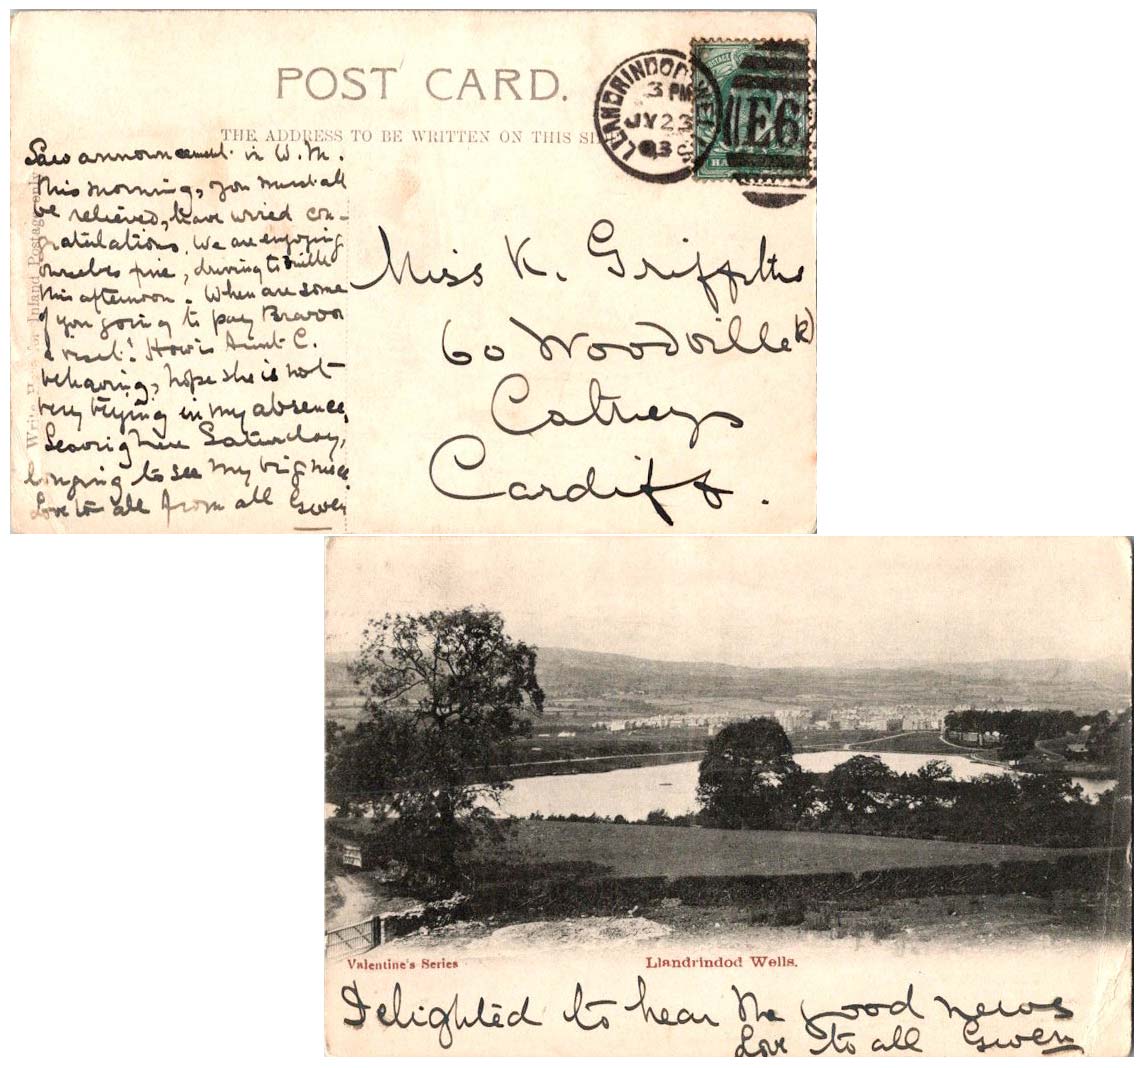 POST CARD.
THE ADDRESS TO BE WRITTEN ON THIS SI
LLANDRINDOD WEL
3 PM
JY 23
03
E6
POSTAGE
HA
Write Here for Inland Postage only
Saw announcement in W.M.
this morning, you must all
be relieved, have wired con-
gratulations. We are enjoying
ourselves fine, driving to Builth
this afternoon. When are some
of you going to pay
a visit? How is Aunt C.
behaving, hope she is not
very trying in my absence,
Leaving here Saturday,
longing to see my big niece
Love to all from all Gwen
Miss K. Griffiths
60 Woodville Rd
Cathays
Cardiff.
Valentine's Series
Llandrindod Wells.
Delighted to hear the good news
Love to all Gwen